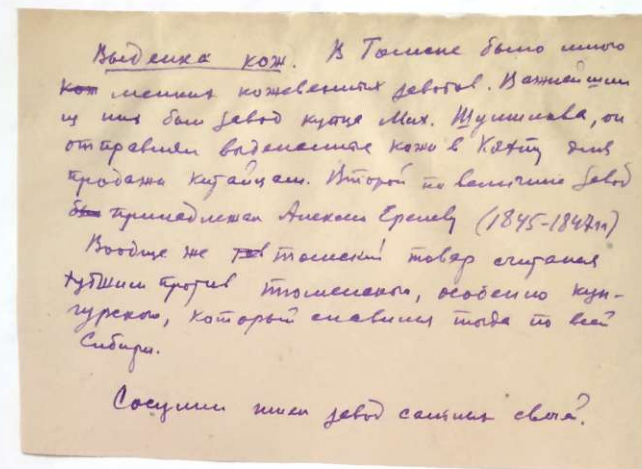 Выделка кож. В Томске было много
мелких кожевенных заводов. Важнейшим
из них был завод купца Мих. Шумилова, он
отправлял выделанные кожи в Кяхту для
продажи китайцам. Второй по величине завод
принадлежал Алексею Ереневу (1845-1847гг)
Вообще же томский товар считался
худшим против тюменского, особенно кун-
гурского, который славился тогда по всей
Сибири.
Сосулин имел завод сальных свечей.